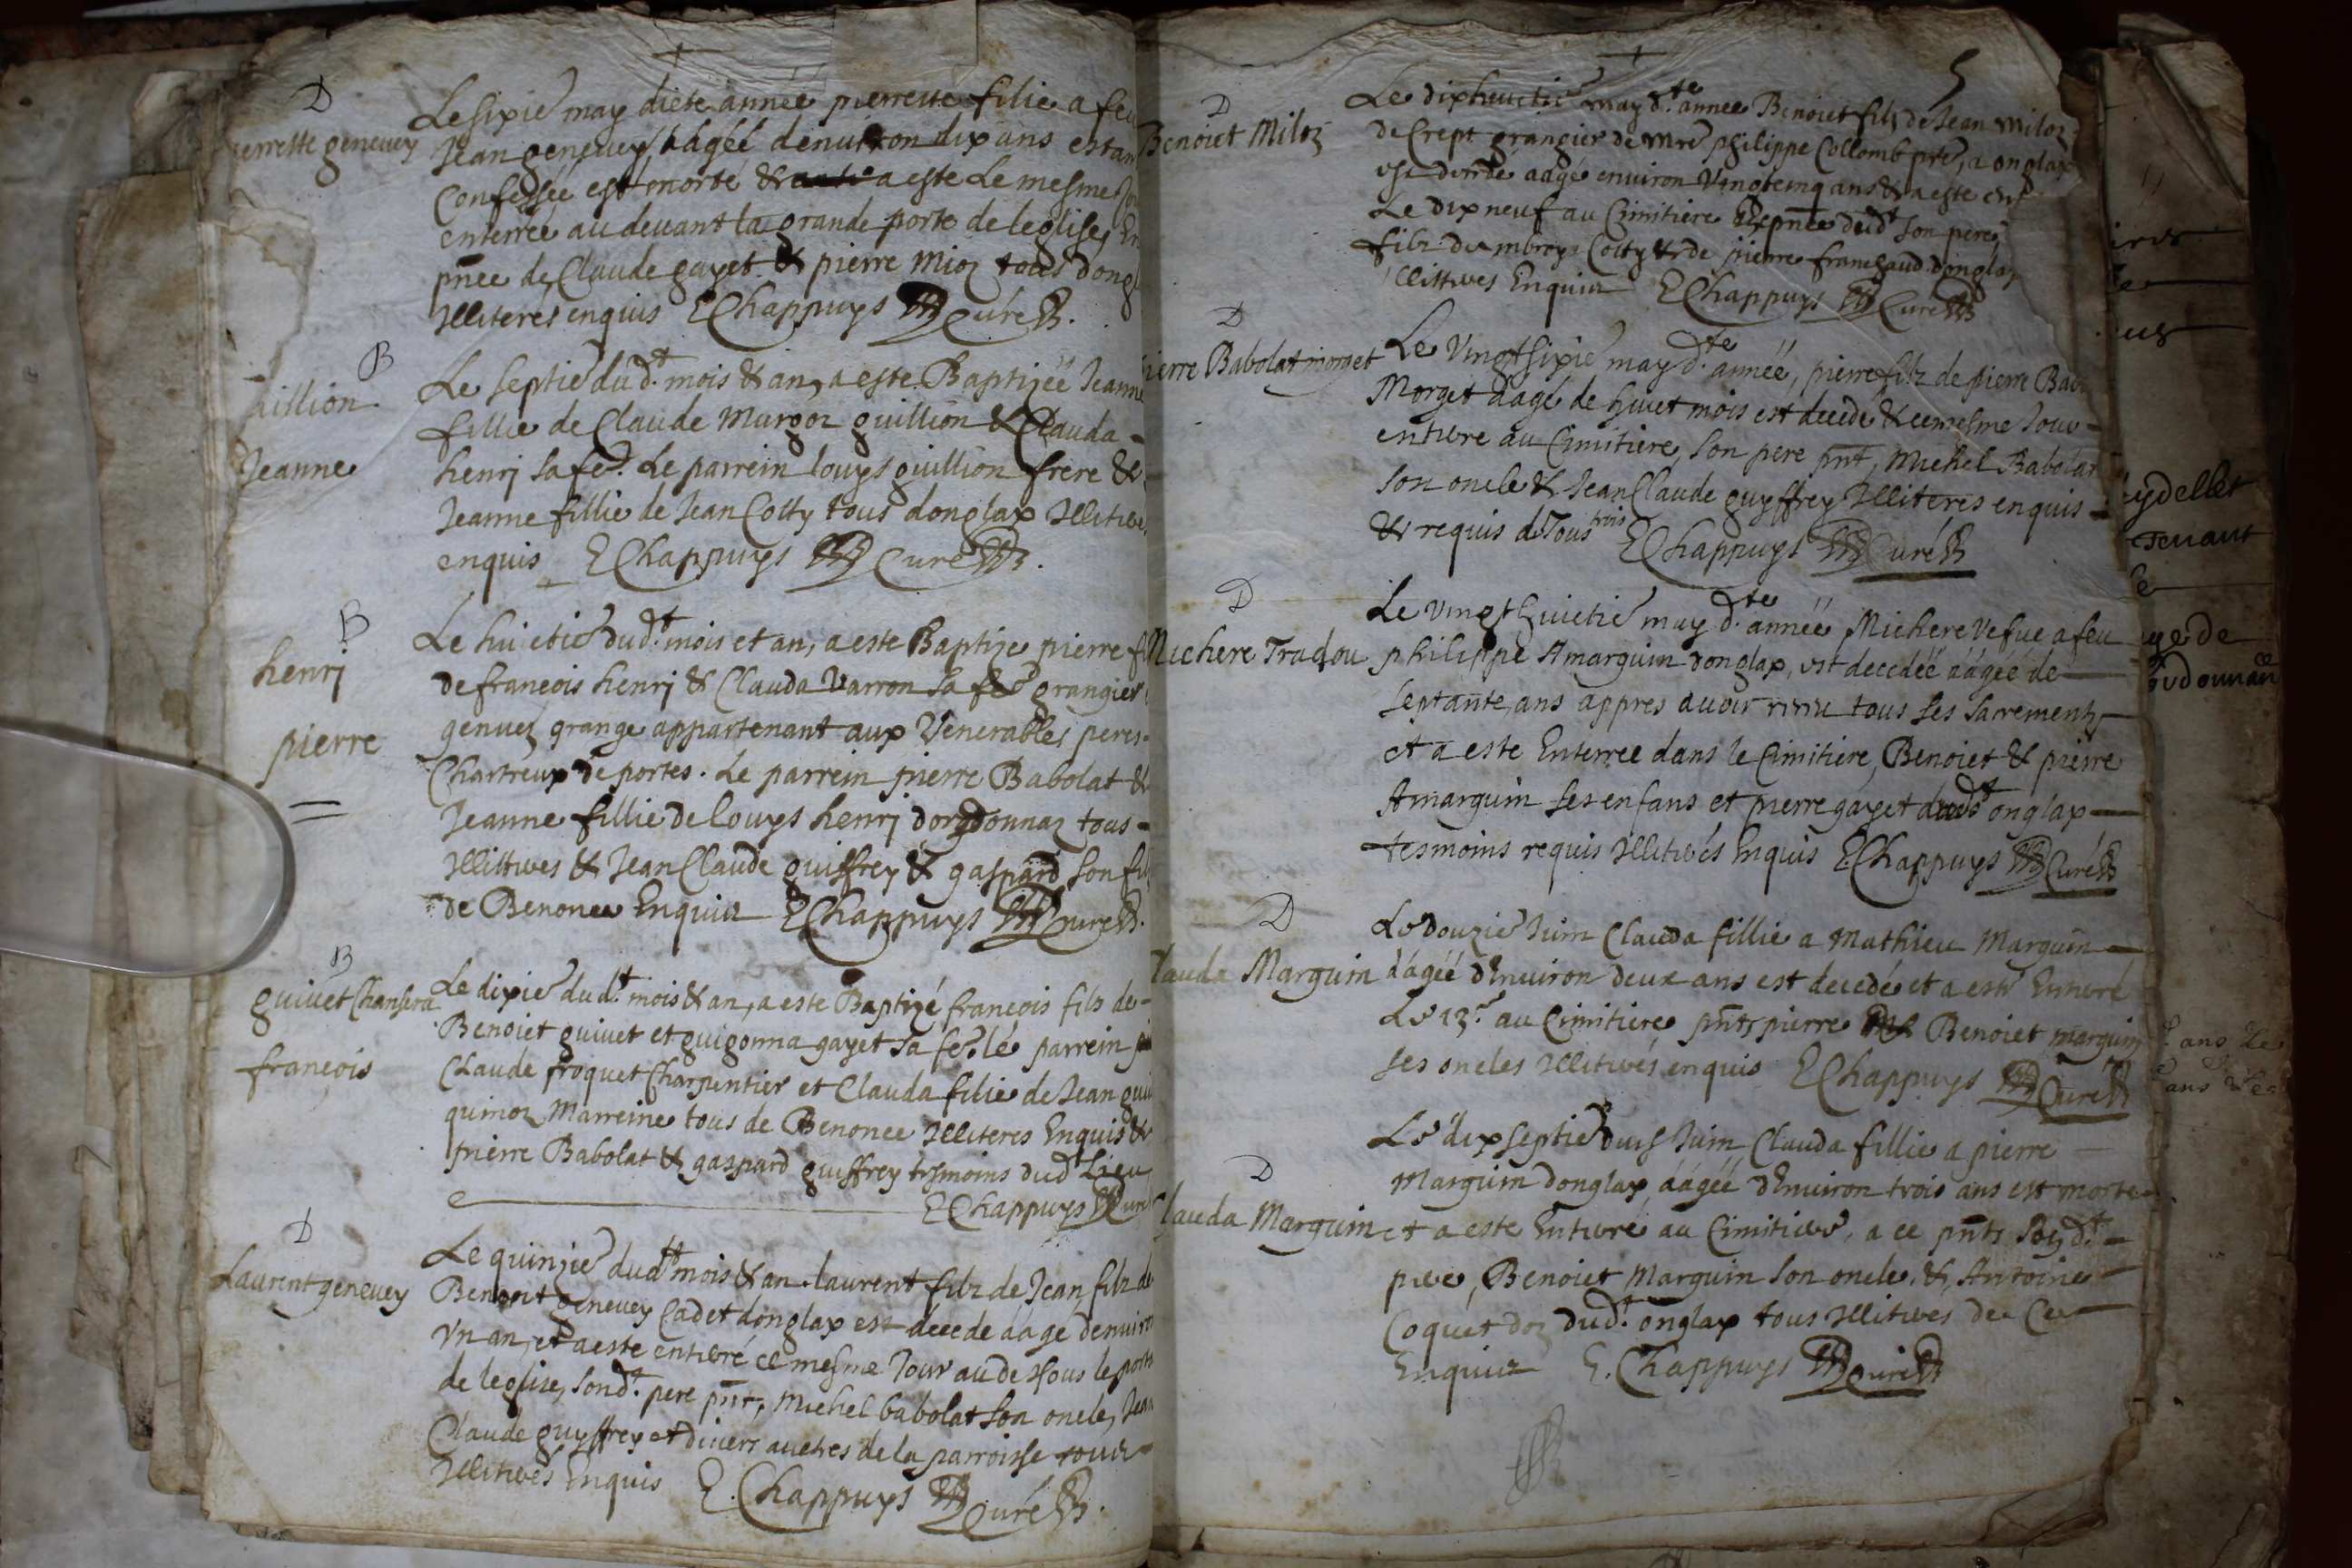 D
Le sixie may dicte année pierrette fillie a feu
pierrette geneuey
Jean geneuey aagéé denuiron dix ans estan
Confessée est morte & a este Le mesme Jou
enterrée au deuant la grande porte de leglise, En
pnce de Claude gayet & pierre Mioz tous dongl
Illiterés enquis E Chappuys Curé
B
Le septie dud.t mois & an, a este Baptizéé Jeanne
guillion
fillie de Claude Murgoz guillion & Clauda
Jeanne
henri sa fe. Le parrein louys guillion frere &
Jeanne fillie de Jean Cotty tous donglax Illitere
enquis E Chappuys Curé
B
Le huictie dud.t mois et an, a este Baptize pierre fi
henri
de francois henri & Clauda Varron sa fe grangier
pierre
genuez grange appartenant aux Venerables peres
Chartreux de portes. Le parrein pierre Babolat &
Jeanne fillie de louys henri dordonnaz tous
Illitteres & Jean Claude guiffrey & gaspard son fil
de Benonce Enquis E Chappuys Curé
B
Le dixie dud.t mois & an, a este Baptizé francois fils de
guiuet Chansera
Benoict guiuet et guigonna gayet sa fe. le parrein
francois
Claude froquet Charpentier et Clauda filie de Jean gui
quinoz Marreine tous de Benonce Illiteres Enquis &
pierre Babolat & gaspard guiffrey tesmoins dud Lieu
E Chappuys Curé
D
Le quinzie dud.t mois & an laurent filz de Jean filz de
Laurent geneuey
Benoict geneuey Cadet donglax est décede áage denuiron
Vn an, et a este enterré ce mesme Jour au dessous le porte
de leglise, sond.t pere pnt, Michel babolat son oncle, Jean
Claude guyffrey et diuers auctres de la parroisse tous
Illiterés Enquis E. Chappuys Curé
5
D
Le dixhuictie may d.te annee Benoict filz de Jean Miloz
Benoict Miloz
de Crept grangier de Mre philippe Collomb pre, a onglax
est aagé enuiron Vingtcinq ans & a este
Le dix neuf au Cimitiere En pnce dud.t son pere,
filz dembroys Cotty & de pierre franchaud donglax
Illitteres Enquis E Chappuys Curé
D
Le Vingtsixie may d.te année, pierre filz de pierre Bab
pierre Babolat morget
Morget áagé de huict mois est decede & ce mesme Jour
enterre au Cimitiere, son pere pnt, Michel Babolat
son oncle & Jean Claude guyffrey Illiteres enquis
& requis de Tous trois E Chappuys Curé
D
Le vingt huictie may d.te année Michere Vefue a feu
Michere Tradou
philippe Amarguin donglax, est decedéé áagéé de
septante ans appres auoir receu tous ses sacrements
et a este Enterree dans le Cimitiere, Benoict & pierre
Amarguin ses enfans et pierre gayet dud.t onglax
tesmoins requis Illiterés Enquis E Chappuys Curé
D
Le douzie Juin Clauda fillie a Mathieu Marguin
Clauda Marguin
áagéé dEnuiron deux ans est decedé et a este Enterré
Le 13.e au Cimitiere pnts pierre & Benoict marguin
ses oncles Illiterés enquis E Chappuys Curé
Le dixseptie dud Juin Clauda fillie a pierre
D
Marguin donglax áagéé dEnuiron trois ans est morte
Clauda Marguin
et a este Enterré au Cimitiere, a ce pnts sond.t
pere, Benoict Marguin son oncle, & Antoine
Coquet doz dud.t onglax tous Illiteres de Ce
Enquis E. Chappuys Curé